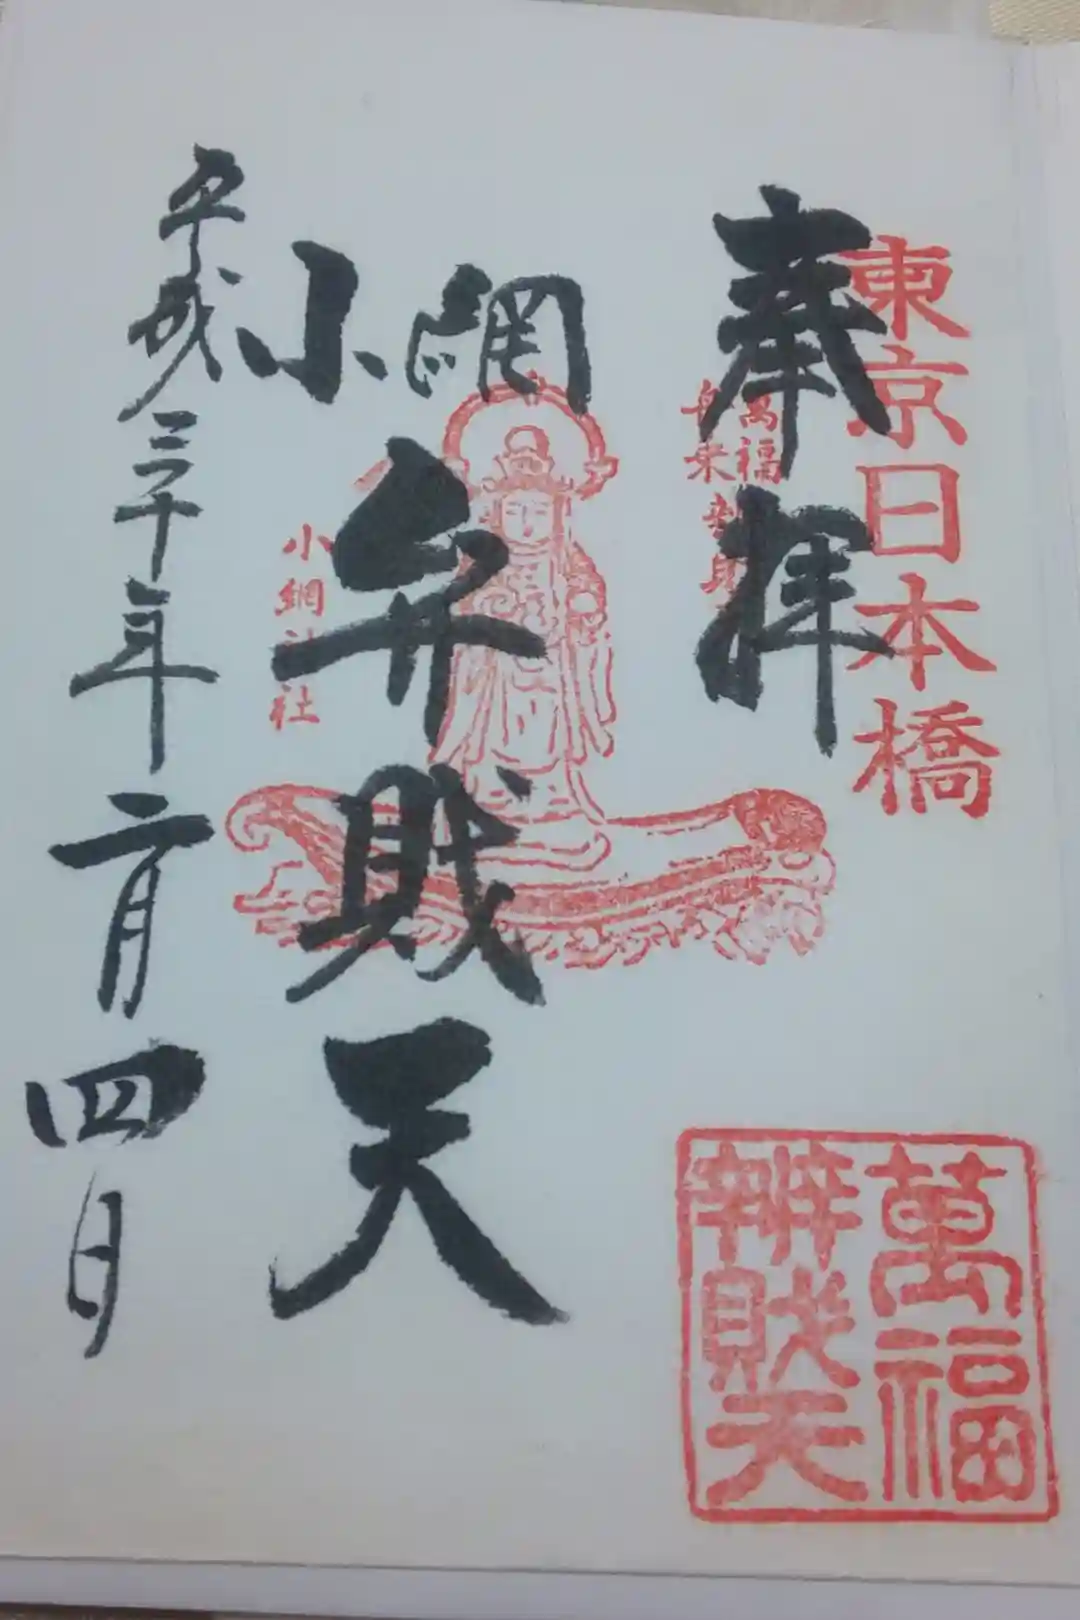 東京日本橋
奉拝
萬福
舟乗
小網
弁財天
小網神社
平成三十年二月四日
萬福
辨財天